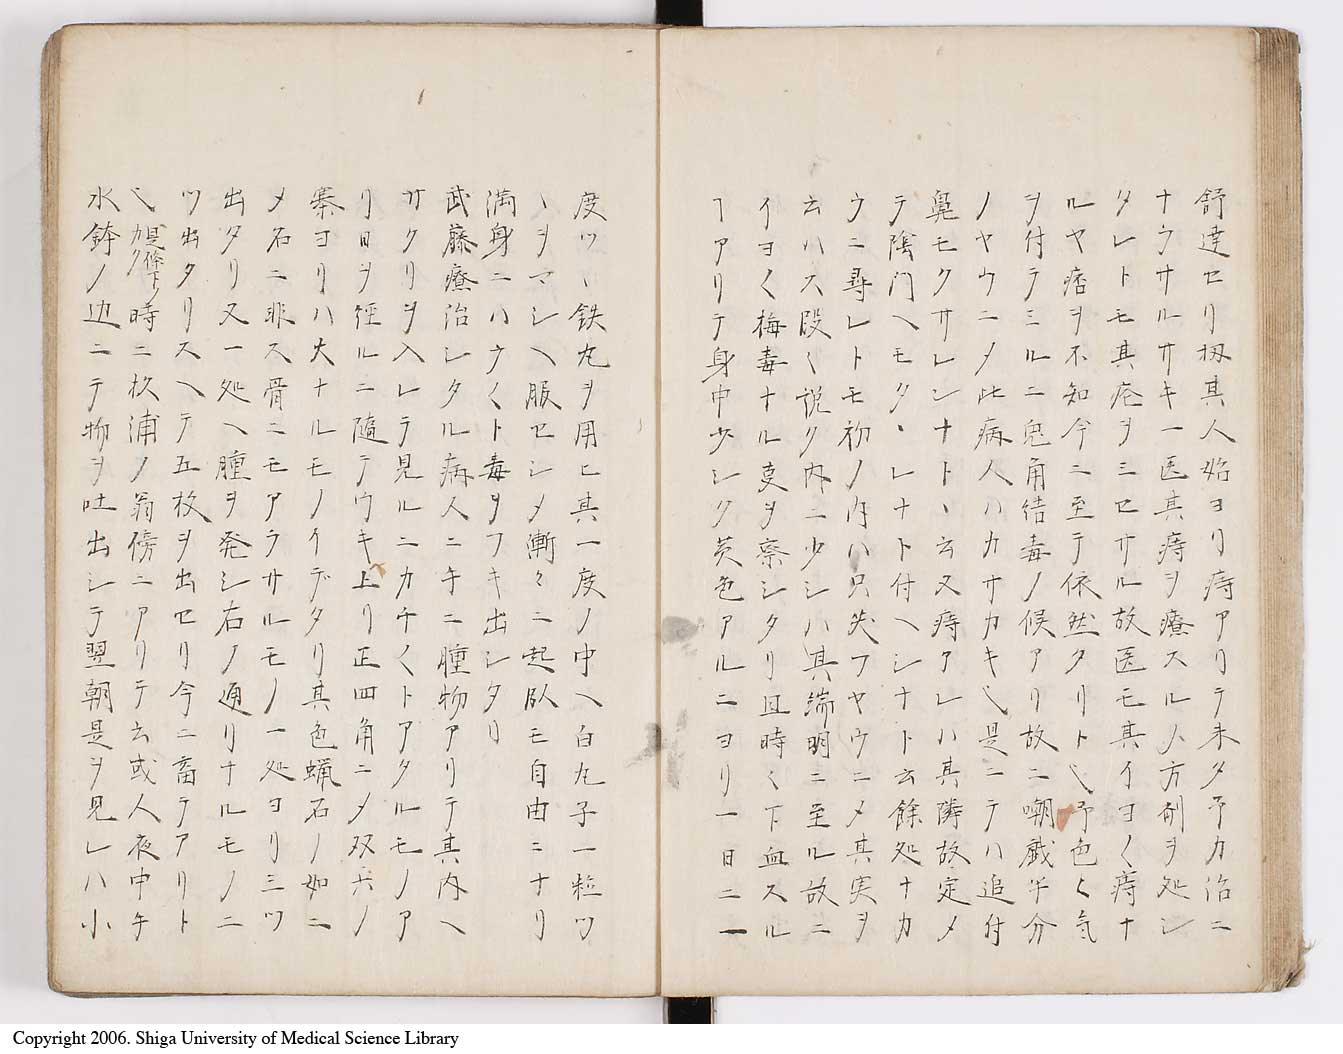 舒達セリ扨其人始ヨリ痔アリテ未タ予カ治ニ
ナウサルサキ一医其痔ヲ療スルノ方剤ヲ処シ
タレトモ其疮ヲミセサル故医モ其イヨ〱痔ナ
ルヤ痞ヲ不知今ニ至テ依然タリト也予色〱気
ヲ付テミルニ兎角結毒ノ候アリ故ニ嘲戯半分
ノヤウニメ此病人ハカサカキ也是ニテハ追付
鼻モクサレンナト丶云又痔アレハ其隣故定メ
テ陰門ヘモタ丶レナト付ヘシナト云餘処ナカ
ウニ尋レトモ初ノ内ハ只失フヤウニメ其実ヲ
云ハス段〱説ク内ニ少シハ其端明ニ至ル故ニ
イヨ〱梅毒ナル叓ヲ察シタリ且時〱下血スル
ヿアリテ身中少シク芡色アルニヨリ一日ニ一
度ツ丶鉄丸ヲ用ヒ其一度ノ中ヘ白丸子一粒ツ
丶ヲマシヘ服セシメ漸々ニ起臥モ自由ニナリ
満身ニハウ〱ト毒ヲフキ出シタリ
武藤療治シタル病人ニ午ニ腫物アリテ其内ヘ
サクリヲ入レテ見ルニカチ〱トアタルモノア
リ日ヲ経ルニ随テウキ上リ正四角ニメ双六ノ
寨ヨリハ大ナルモノイデタリ其色蝋石ノ如ニ
メ石ニ非ス骨ニモアラサルモノ一処ヨリ三ツ
出タリ又一処ヘ腫ヲ発シ右ノ通リナルモノ二
ツ出タリスヘテ五枚ヲ出セリ今ニ畜テアリト
也是條下ノ加ク時ニ杦浦ノ翁傍ニアリテ云或人夜中午
水鉢ノ辺ニテ物ヲ吐出シテ翌朝是ヲ見レハ小
Copyright 2006. Shiga University of Medical Science Library